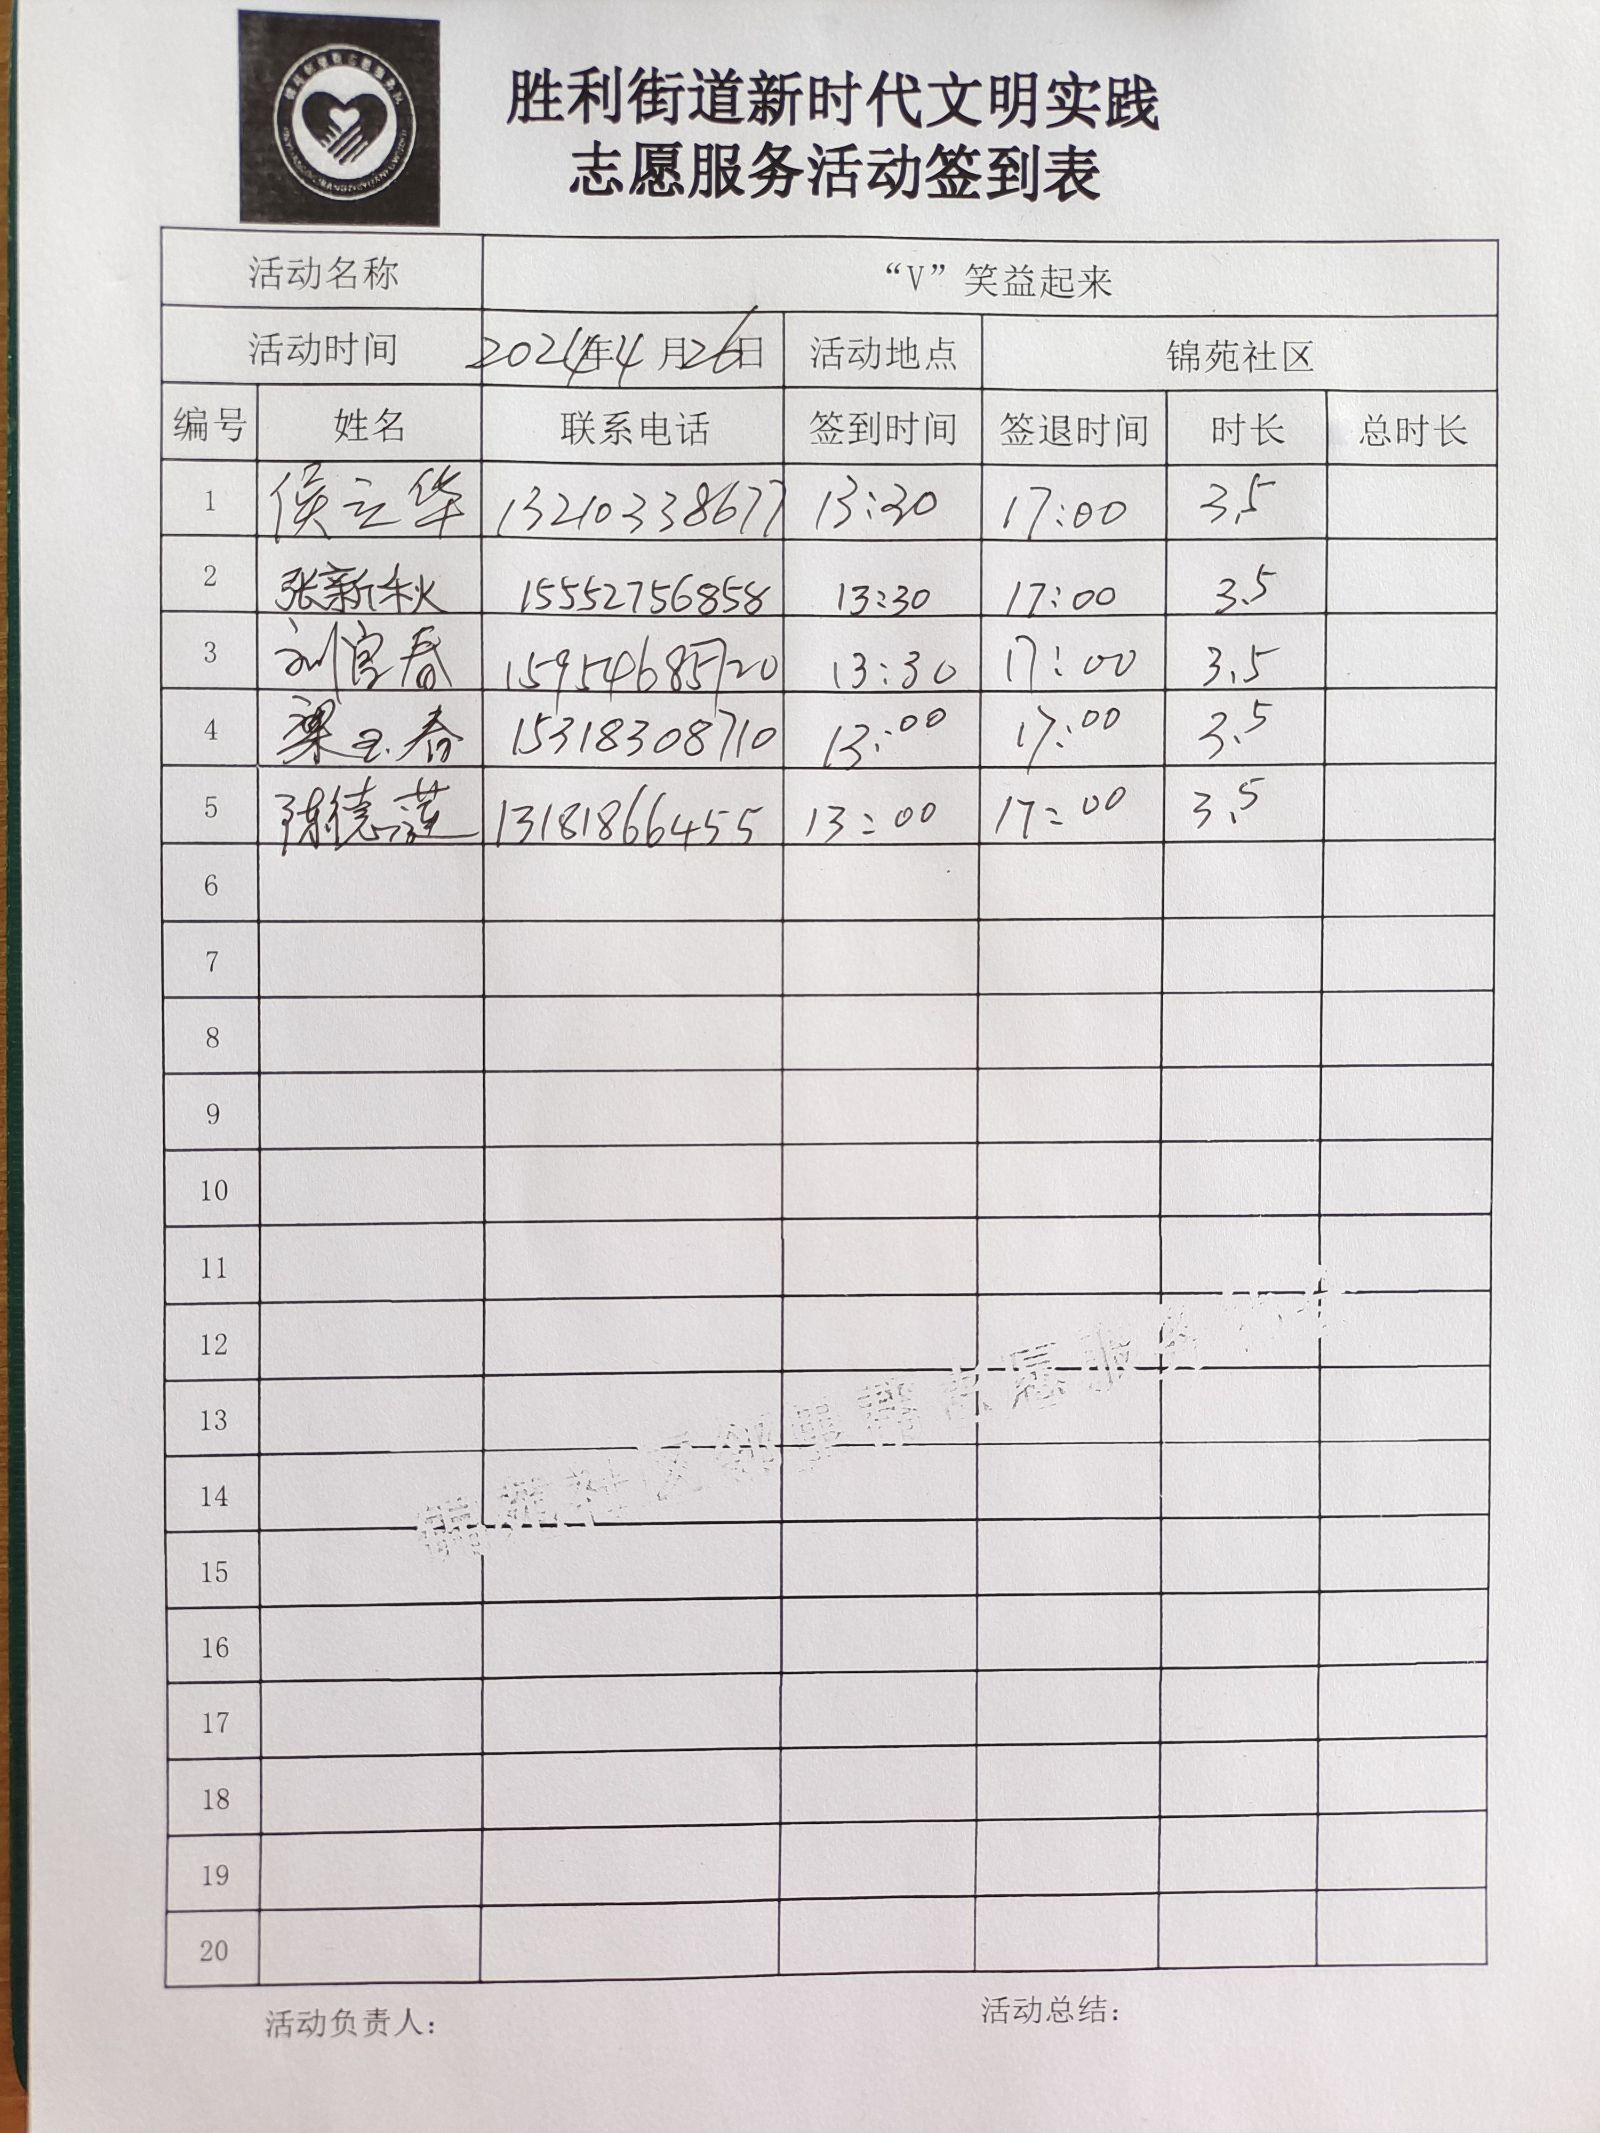 胜利街道新时代文明实践
志愿服务活动签到表
活动名称 “V”笑益起来
活动时间 2024年4月26日 活动地点 锦苑社区
编号 姓名 联系电话 签到时间 签退时间 时长 总时长
1 侯立华 13210338677 13:30 17:00 3.5
2 张新秋 15552756858 13:30 17:00 3.5
3 刘宫春 15954685720 13:30 17:00 3.5
4 梁玉春 15318308710 13:00 17:00 3.5
5 陈德莲 13181866455 13:00 17:00 3.5
6
7
8
9
10
11
12
13
14
15
16
17
18
19
20
锦苑社区邻里帮志愿服务
活动负责人： 活动总结：